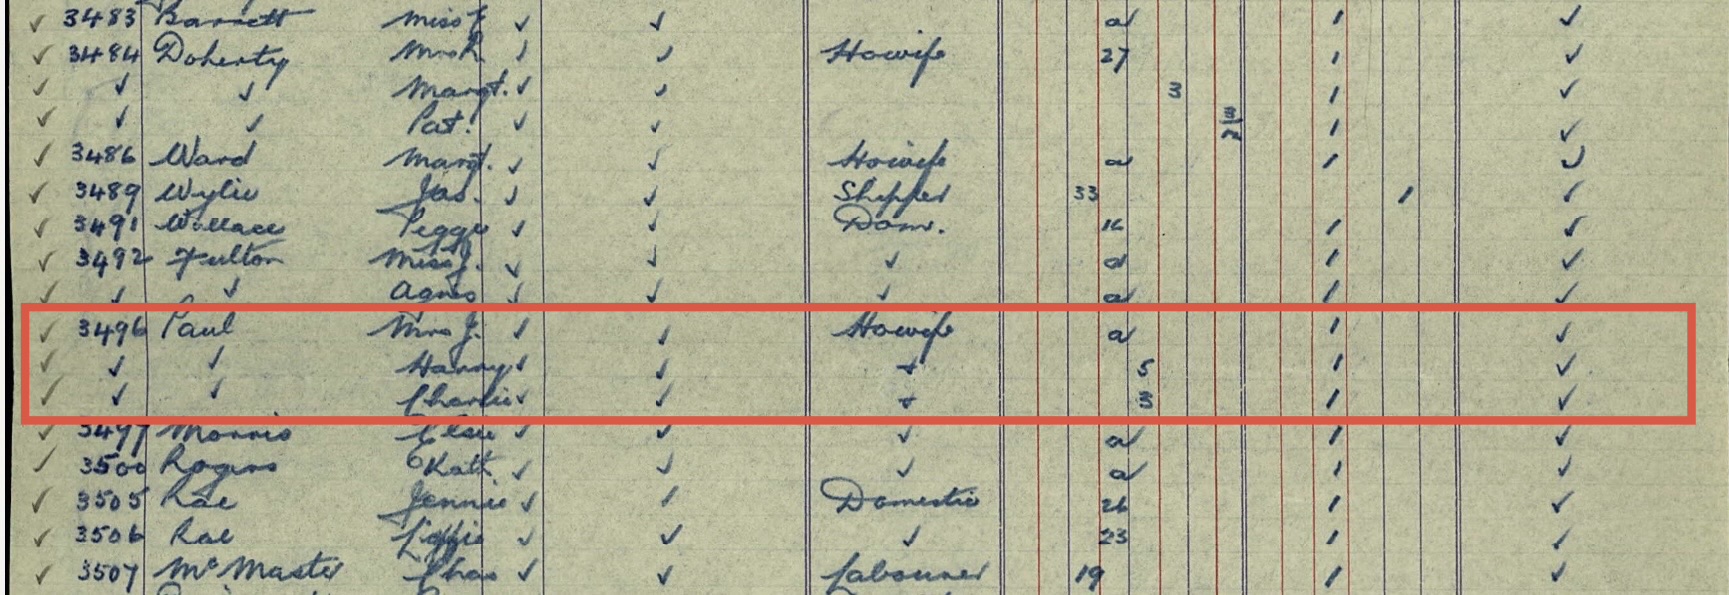 ✓ 3483 Barnett Miss J. ✓ ✓ a/ / ✓
✓ 3484 Doherty Mrs R. ✓ ✓ Howife 27 / ✓
✓ ✓ ✓ Margt. ✓ ✓ 3 / ✓
✓ ✓ ✓ Pat. ✓ ✓ / ✓
✓ 3486 Ward Margt. ✓ ✓ Howife a/ / ✓
✓ 3489 Wylie Jas. ✓ ✓ Shipper 33 / ✓
✓ 3491 Wallace Peggy ✓ ✓ Dom. 16 / ✓
✓ 3492 Fulton Miss J. ✓ ✓ ✓ a/ / ✓
✓ ✓ ✓ Agnes ✓ ✓ ✓ a/ / ✓
✓ 3496 Paul Mrs J. ✓ ✓ Howife a/ / ✓
✓ ✓ ✓ Harry ✓ ✓ + 5 / ✓
✓ ✓ ✓ Charlie ✓ ✓ + 3 / ✓
✓ 3497 Morris Elsie ✓ ✓ ✓ a/ / ✓
✓ 3500 Rogers Kath. ✓ ✓ ✓ a/ / ✓
✓ 3505 Rae Jennie ✓ ✓ Domestic 26 / ✓
✓ 3506 Rae ✓ ✓ ✓ 23 / ✓
✓ 3507 McMaster Chas ✓ ✓ Labourer 19 / ✓